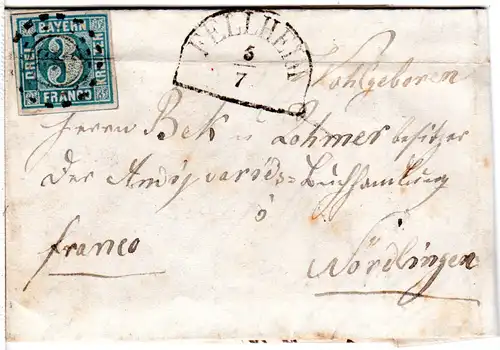 BAYERN
DREI
3
KREUZER
FRANCO
FELLHEIM
5
7
Wohlgeboren
Herrn Bek u Lohmer besitzer
Der Andiquariats=Buchhandlung
franco
Nördlingen